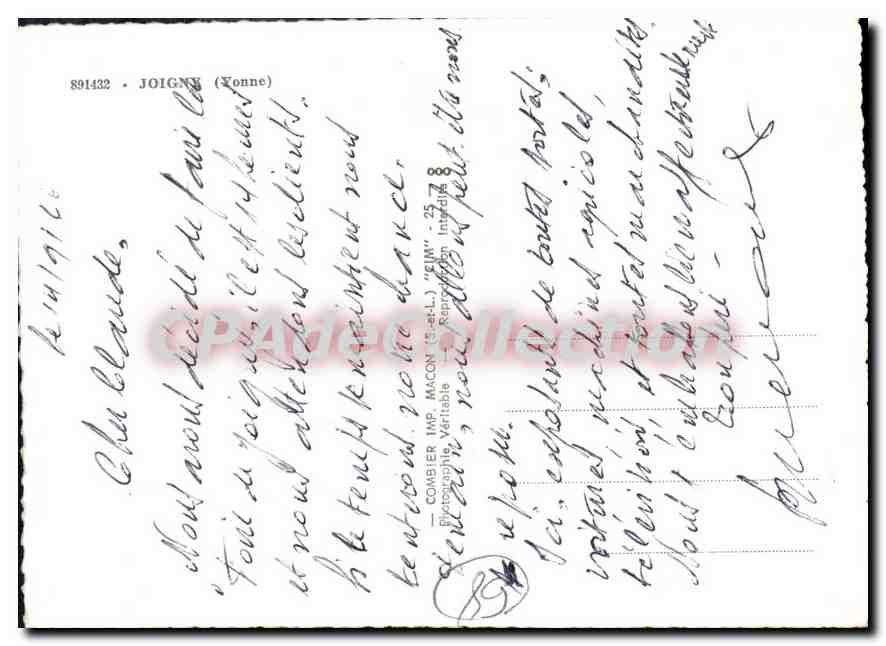 891432 - JOIGNY (Yonne)
le 14/9/6
Cher Claude,
Nous avons décidé de faire la
"Foire de Joigny" c'est 14 heures
et nous attendons les clients.
Si le temps se maintient nous
tenterons notre chance.
demain, nous allons peut être nous
repose.
Ici, exposants de toutes sortes,
voitures, machines agricoles,
télévision, et toutes marchandises
Nous t'embrassons bien affectueusement
— COMBIER IMP. MACON (S.-et-L.) "CIM" - 25 7 8
Photographie Véritable — Reproduction Interdite
89
CPAdeCollection